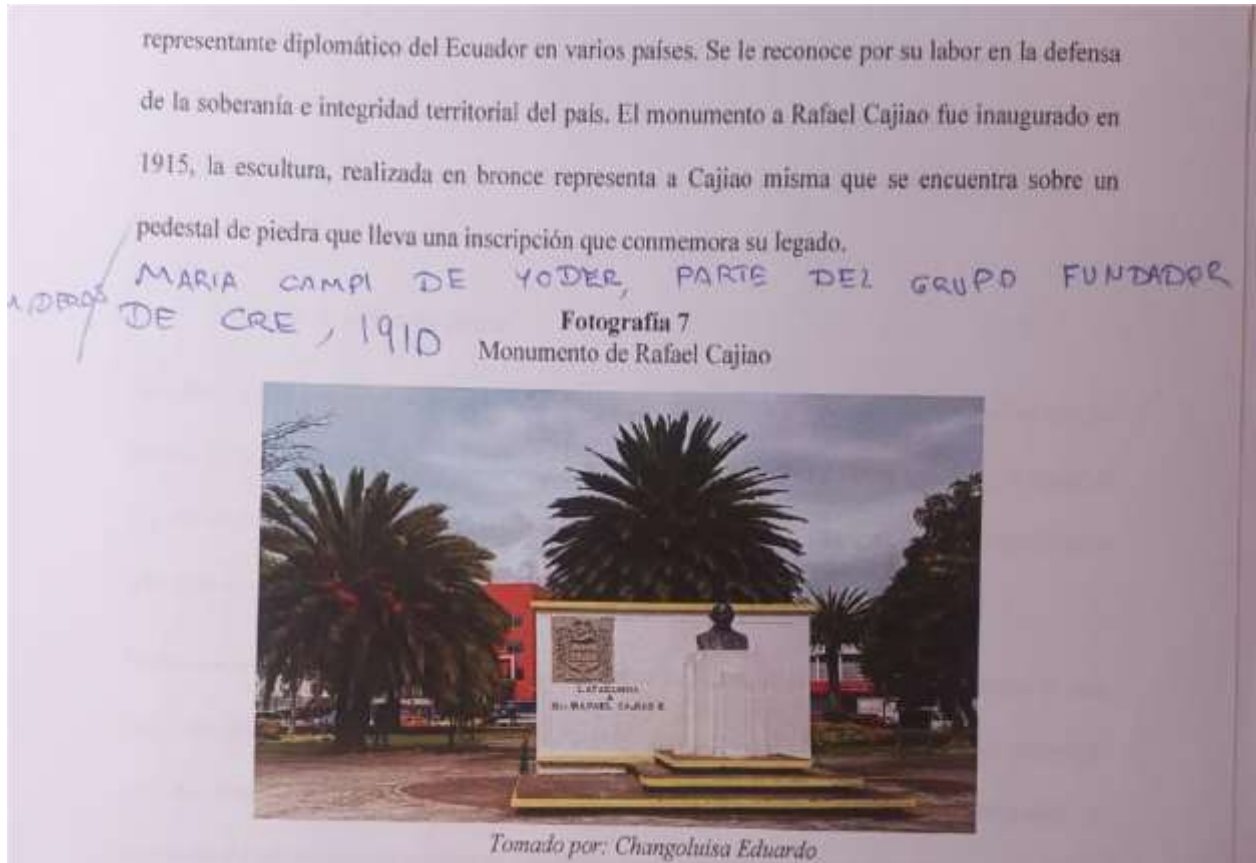 representante diplomático del Ecuador en varios países. Se le reconoce por su labor en la defensa
de la soberanía e integridad territorial del país. El monumento a Rafael Cajiao fue inaugurado en
1915, la escultura, realizada en bronce representa a Cajiao misma que se encuentra sobre un
pedestal de piedra que lleva una inscripción que conmemora su legado.
MARIA CAMPI DE YODER, PARTE DEL GRUPO FUNDADOR
DE CRE, 1910
Fotografía 7
Monumento de Rafael Cajiao
LATACUNGA
A
RAFAEL CAJIAO
Tomado por: Changoluisa Eduardo